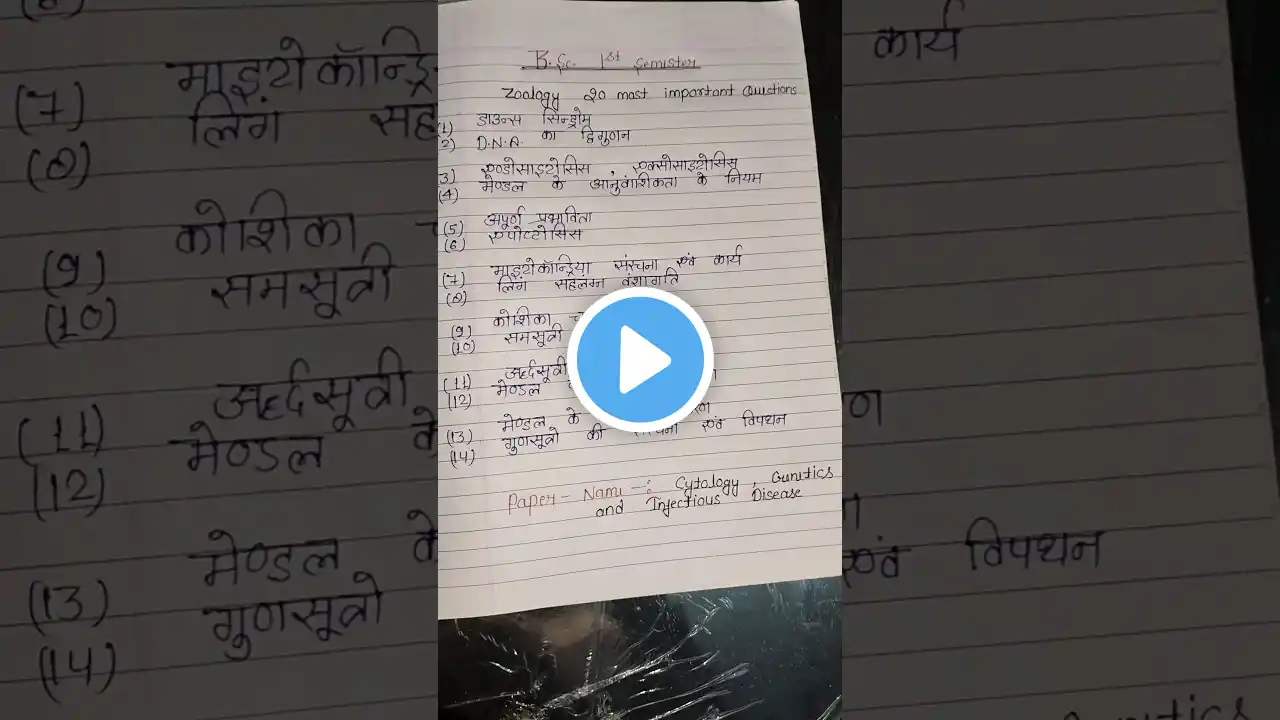 B.Sc. 1st Semister
Zoology 20 most important Questions
(1) डाउन्स सिन्ड्रोम
(2) D.N.A. का द्विगुणन
(3) एण्डोसाइटोसिस , एक्सोसाइटोसिस
(4) मेण्डल के आनुवांशिकता के नियम
(5) अपूर्ण प्रभाविता
(6) एपोप्टोसिस
(7) माइटोकॉन्ड्रिया संरचना एवं कार्य
(8) लिंग सहलग्न वंशागति
(9) कोशिका
(10) समसूत्री
(11) अर्द्दसूत्री
(12) मेण्डल
(13) मेण्डल के
(14) गुणसूत्रो की संरचना एवं विपथन
Paper - Name -: Cytology , Genetics
and Infectious Disease